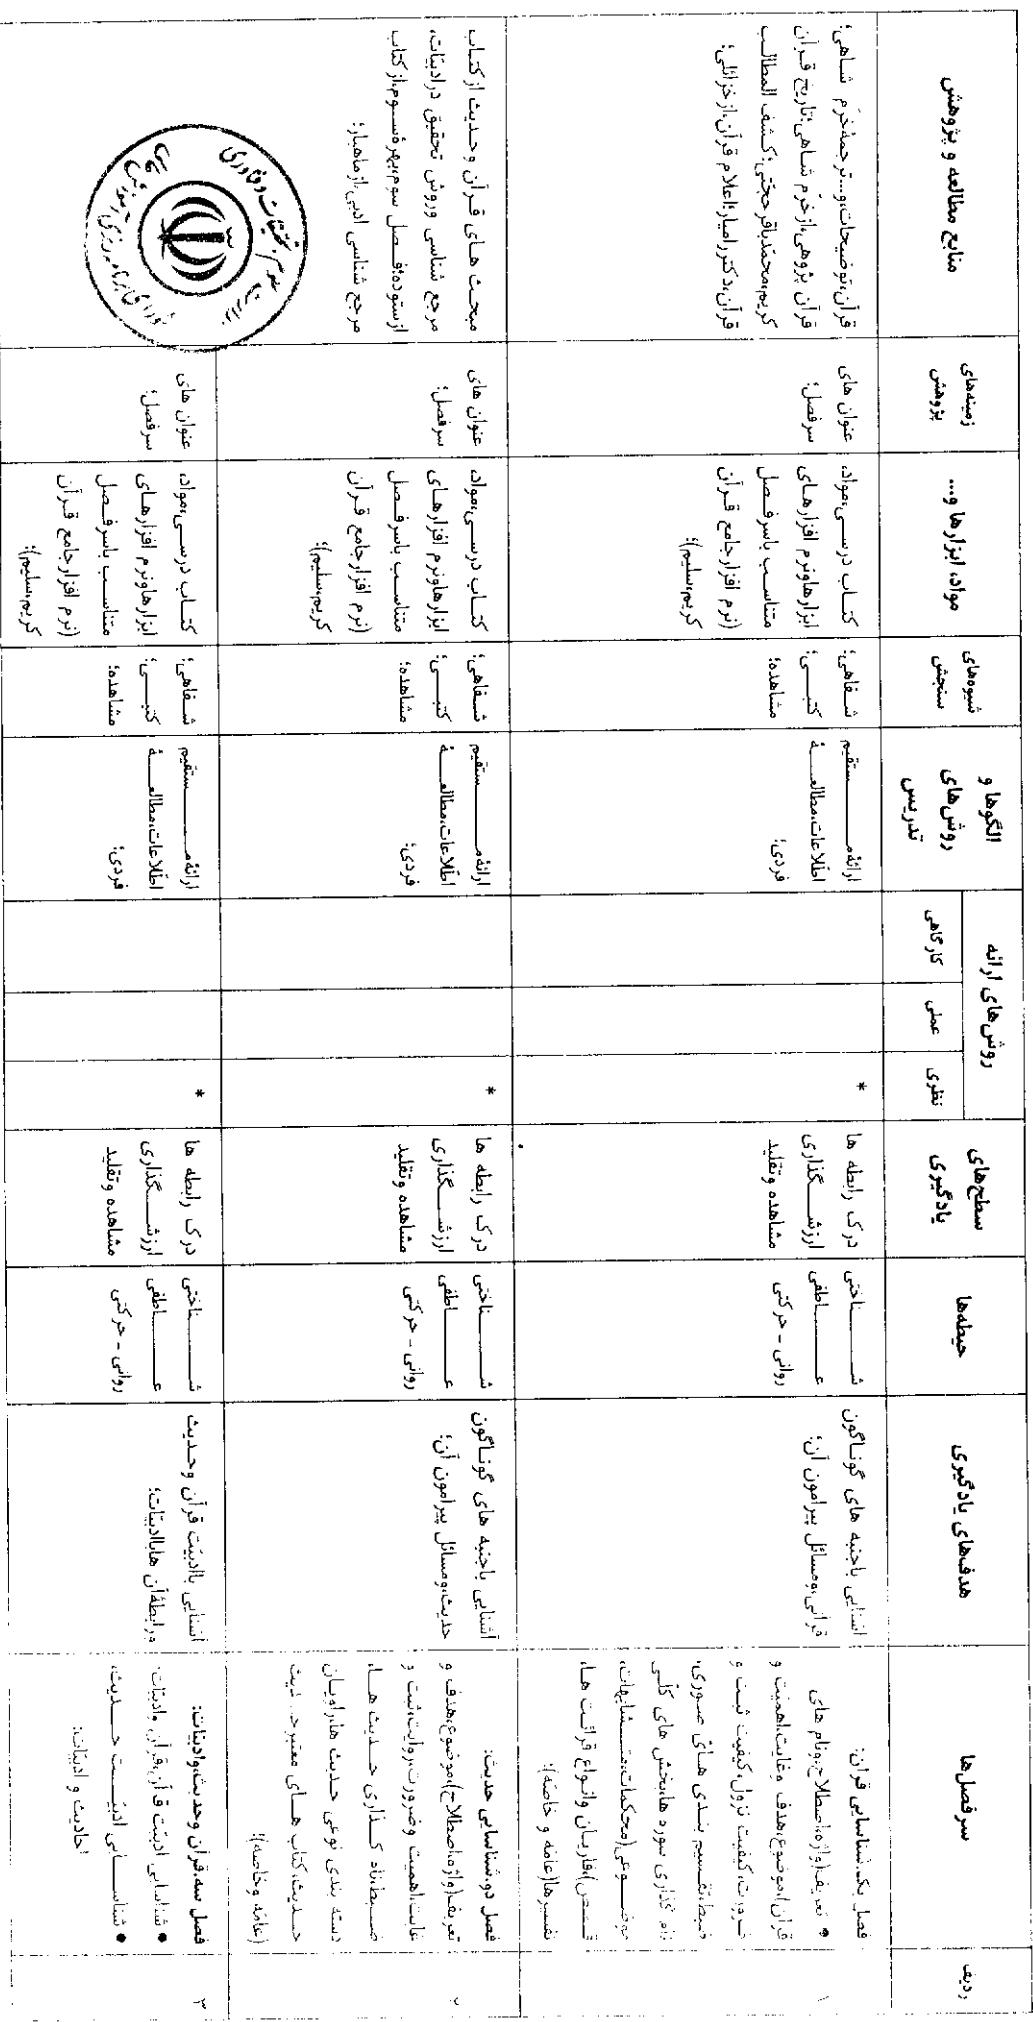 ردیف
سرفصل‌ها
هدف‌های یادگیری
حیطه‌ها
سطح‌های
یادگیری
روش‌های ارائه
نظری
عملی
کارگاهی
الگوها و
روش‌های
تدریس
شیوه‌های
سنجش
مواد، ابزارها و...
زمینه‌های
پژوهش
منابع مطالعه و پژوهش
۱
فصل یک.شناسایی قرآن:
● تعریف(واژه،اصطلاح،ونام های
قرآن)،موضوع،هدف وغایت،اهمیت و
ضرورت،کیفیت نزول،کیفیت ثبت و
ضبط،تقسیم بندی های صوری،
نام گذاری سوره ها،بخش های کلّی
موضوعی(محکمات،متشابهات،
قصص)،قاریان وانواع قرائت ها،
تفسیرها(عامّه و خاصّه)؛
آشنایی باجنبه های گوناگون
قرآنی،ومسائل پیرامون آن؛
شناختی
عاطفی
روانی - حرکتی
درک رابطه ها
ارزشگذاری
مشاهده وتقلید
*
ارائهٔ مستقیم
اطّلاعات،مطالعهٔ
فردی؛
شفاهی؛
کتبی؛
مشاهده؛
کتاب درسی،مواد،
ابزارهاونرم افزارهای
متناسب باسرفصل
(نرم افزارجامع قرآن
کریم،سلیم)؛
عنوان های
سرفصل؛
قرآن،توضیحات،و...ترجمهٔ خرّم شاهی؛
قرآن پژوهی،ازخرّم شاهی؛تاریخ قرآن
کریم،محمّدباقرحجّتی؛کشف المطالب
قرآن،دکتررامیار؛اعلام قرآن،ازخزائلی؛
۲
فصل دو.شناسایی حدیث:
تعریف(واژه،اصطلاح)،موضوع،هدف و
غایت،اهمیت وضرورت،روایت،ثبت و
ضبط،نام گذاری حدیث ها،
دسته بندی نوعی حدیث ها،راویان
حدیث،کتاب های معتبرحدیث
(عامّه وخاصه)؛
آشنایی باجنبه های گوناگون
حدیث،ومسائل پیرامون آن؛
شناختی
عاطفی
روانی - حرکتی
درک رابطه ها
ارزشگذاری
مشاهده وتقلید
*
ارائهٔ مستقیم
اطّلاعات،مطالعهٔ
فردی؛
شفاهی؛
کتبی؛
مشاهده؛
کتاب درسی،مواد،
ابزارهاونرم افزارهای
متناسب باسرفصل
(نرم افزارجامع قرآن
کریم،سلیم)؛
عنوان های
سرفصل؛
مبحث های قرآن وحدیث ازکتاب
مرجع شناسی وروش تحقیق درادبیّات،
ازستوده؛فصل سوم،بهرهٔ سوم،ازکتاب
مرجع شناسی ادبی،ازماهیار؛
۳
فصل سه.قرآن وحدیث،وادبیّات:
● شناسایی ادبیّت قرآن،قرآن وادبیّات.
● شناسایی ادبیّت حدیث،
احادیث و ادبیّات؛
آشنایی باادبیّت قرآن وحدیث
ورابطهٔ آن هاباادبیّات؛
شناختی
عاطفی
روانی - حرکتی
درک رابطه ها
ارزشگذاری
مشاهده وتقلید
*
ارائهٔ مستقیم
اطّلاعات،مطالعهٔ
فردی؛
شفاهی؛
کتبی؛
مشاهده؛
کتاب درسی،مواد،
ابزارهاونرم افزارهای
متناسب باسرفصل
(نرم افزارجامع قرآن
کریم،سلیم)؛
عنوان های
سرفصل؛